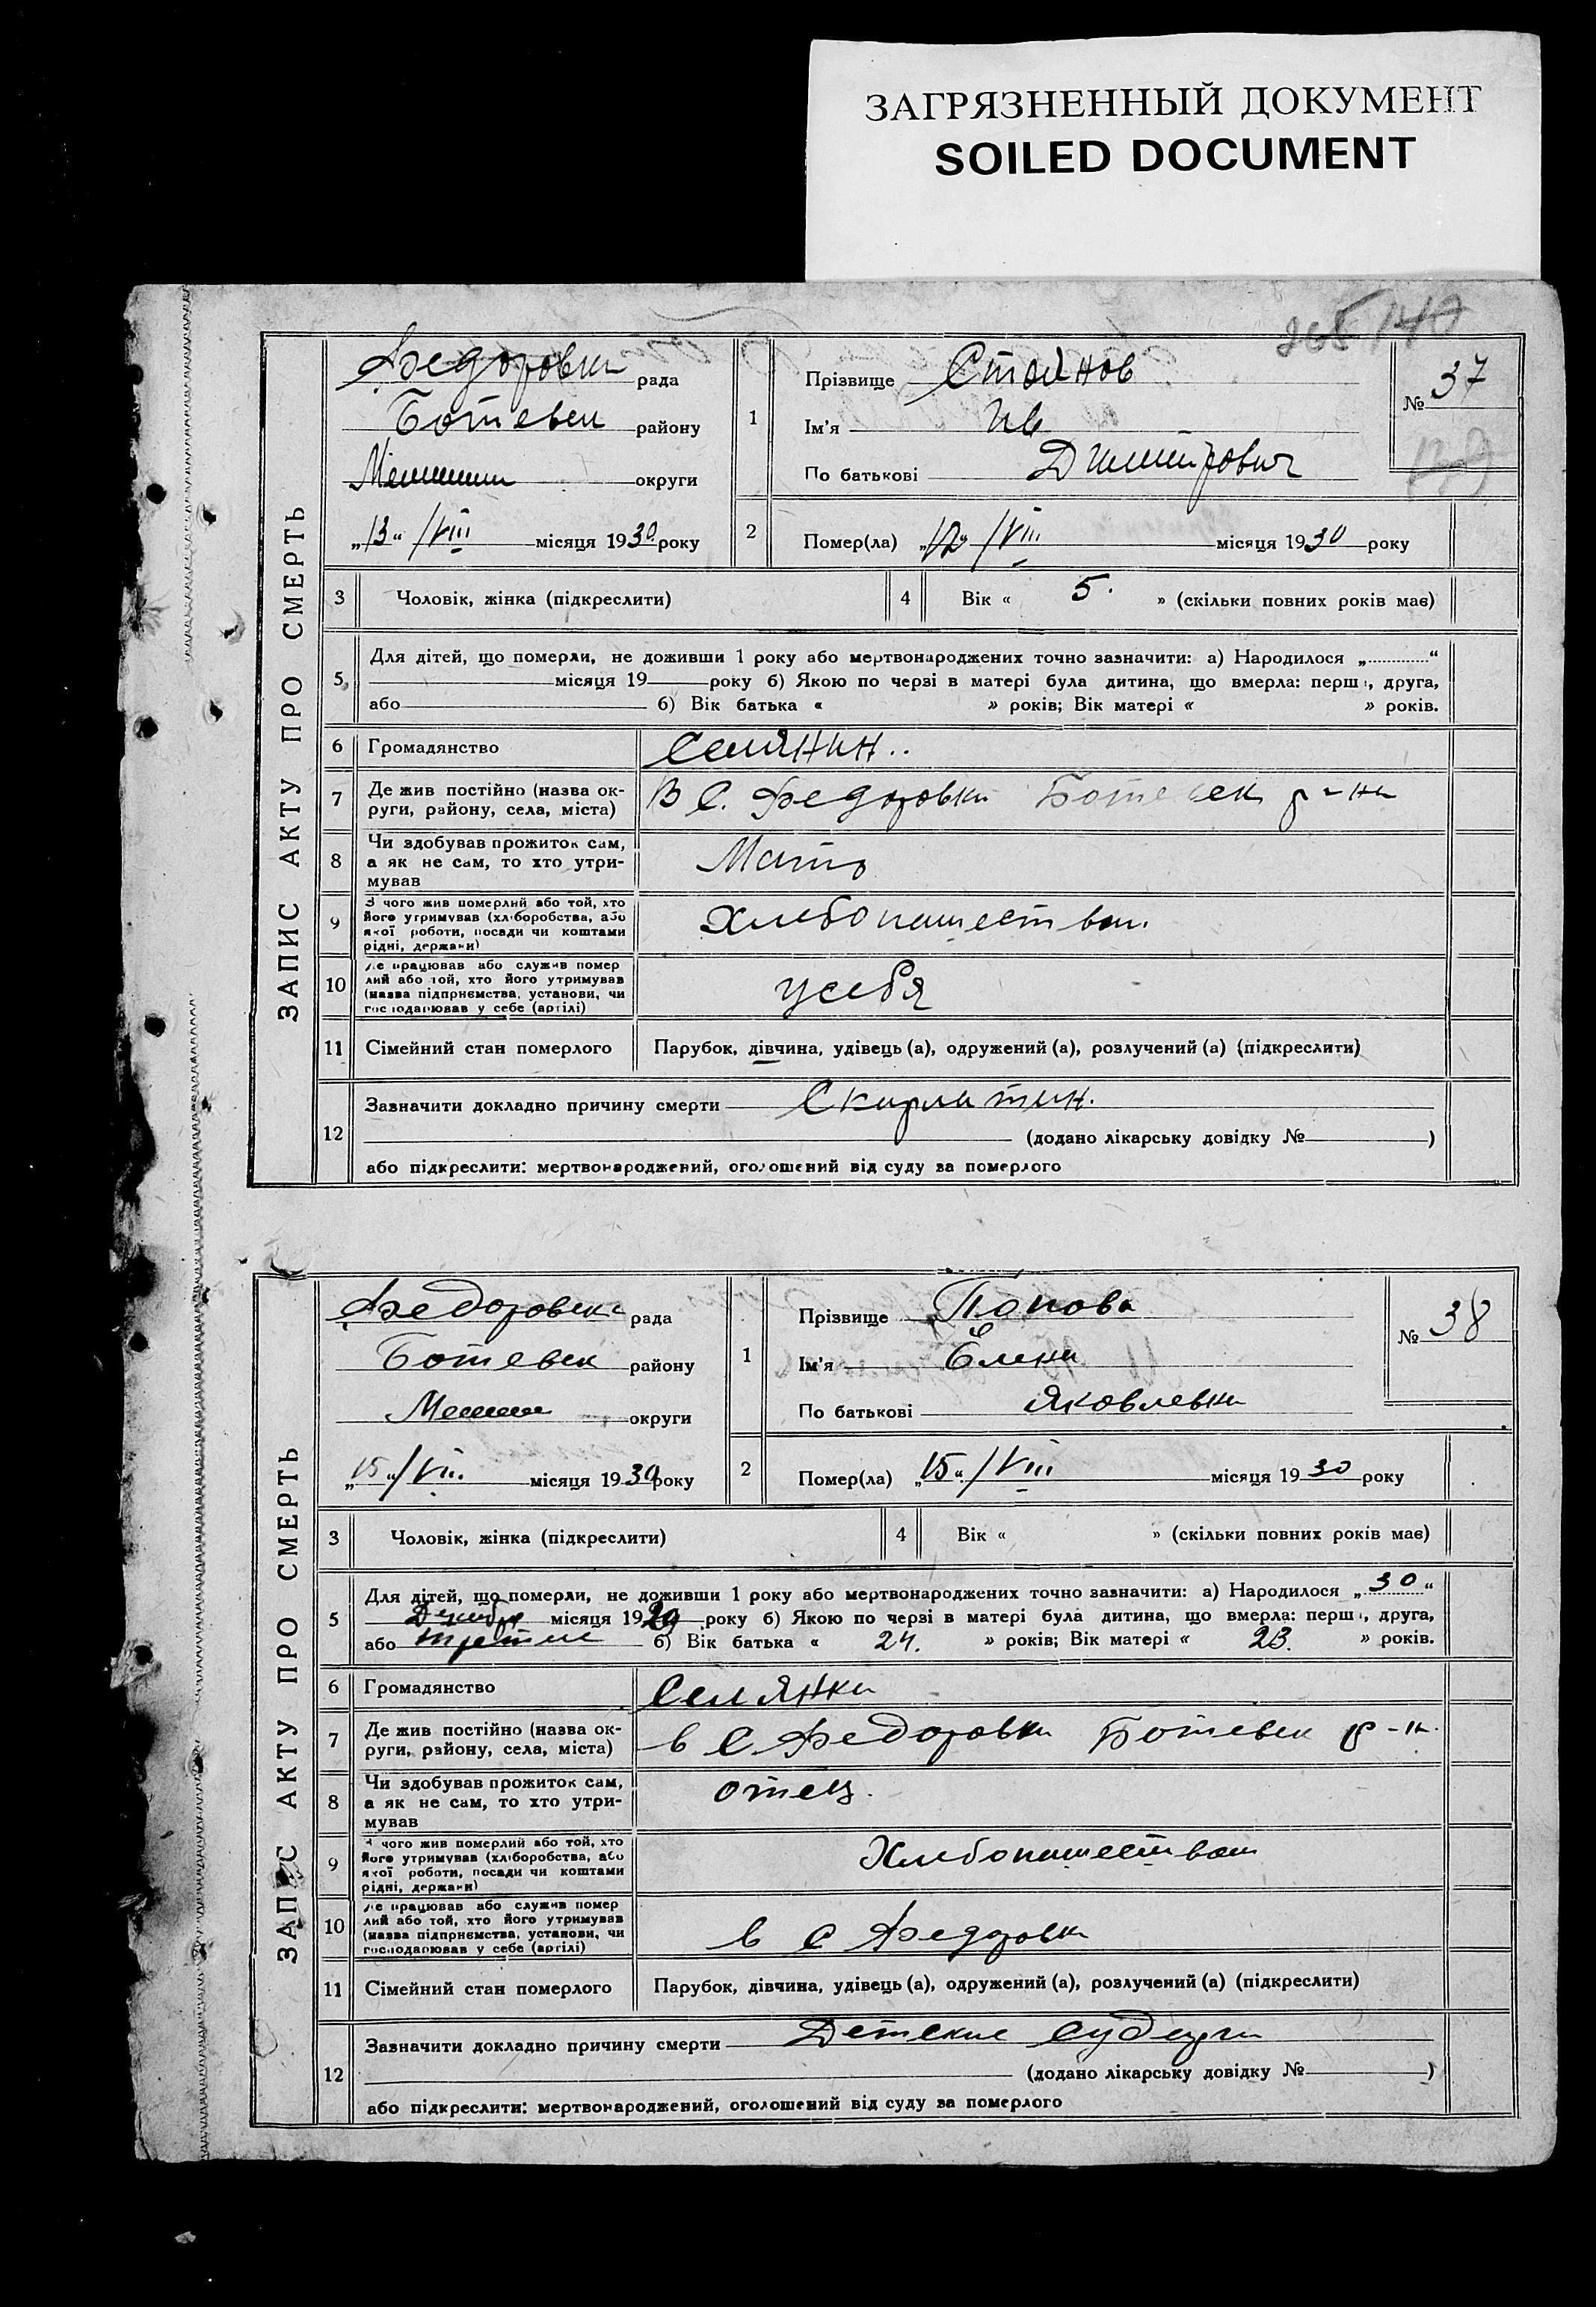 ЗАГРЯЗНЕННЫЙ ДОКУМЕНТ
SOILED DOCUMENT
ЗАПИС АКТУ ПРО СМЕРТЬ
Федоровка рада
Ботевск району
округи
„13“ /VIII місяця 1930 року
1
Прізвище Стоянов
Ім'я
По батькові Дмитрович
№ 37
2
Помер(ла) „12“ /VIII місяця 1930 року
3 Чоловік, жінка (підкреслити)
4 Вік « 5. » (скільки повних років має)
5
Для дітей, що померли, не доживши 1 року або мертвонароджених точно зазначити: а) Народилося „ “
місяця 19 року б) Якою по черзі в матері була дитина, що вмерла: перша, друга,
або б) Вік батька « » років; Вік матері « » років.
6 Громадянство Селянин..
7 Де жив постійно (назва ок-
руги, району, села, міста) В С. Федоровки Ботевск р-на
8 Чи здобував прожиток сам,
а як не сам, то хто утри-
мував Мать
9 З чого жив померлий або той, хто
його утримував (хліборобства, або
якої роботи, посади чи коштами
рідні, держави) Хлебопашеством
10 Де працював або служив помер
лий або той, хто його утримував
(назва підприємства, установи, чи
господарював у себе (артілі) у себя
11 Сімейний стан померлого Парубок, дівчина, удівець (а), одружений (а), розлучений (а) (підкреслити)
12
Зазначити докладно причину смерти Скарлатин.
(додано лікарську довідку № )
або підкреслити: мертвонароджений, оголошений від суду за померлого
ЗАПИС АКТУ ПРО СМЕРТЬ
Федоровска рада
Ботевск району
округи
„15“ /VIII місяця 1930 року
1
Прізвище Попова
Ім'я Елена
По батькові Яковлевна
№ 38
2
Помер(ла) „15“ /VIII місяця 1930 року
3 Чоловік, жінка (підкреслити)
4 Вік « » (скільки повних років має)
5
Для дітей, що померли, не доживши 1 року або мертвонароджених точно зазначити: а) Народилося „30“
Декабря місяця 1929 року б) Якою по черзі в матері була дитина, що вмерла: перша, друга,
або б) Вік батька « 24. » років; Вік матері « 23. » років.
6 Громадянство Селянка
7 Де жив постійно (назва ок-
руги, району, села, міста) в С Федоровки Ботевск р-н.
8 Чи здобував прожиток сам,
а як не сам, то хто утри-
мував отец.
9 З чого жив померлий або той, хто
його утримував (хліборобства, або
якої роботи, посади чи коштами
рідні, держави) Хлебопашеством
10 Де працював або служив помер
лий або той, хто його утримував
(назва підприємства, установи, чи
господарював у себе (артілі) в С Федоровки
11 Сімейний стан померлого Парубок, дівчина, удівець (а), одружений (а), розлучений (а) (підкреслити)
12
Зазначити докладно причину смерти Детские судорги
(додано лікарську довідку № )
або підкреслити: мертвонароджений, оголошений від суду за померлого